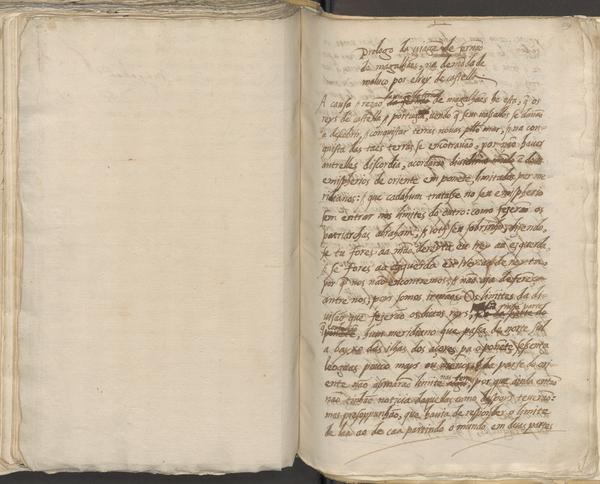 Prologo da viagẽ de fernão
de magalhães, na demãda de
maluco por elrey de castella
A causa / rezão de magalhães he esta, q̃ os
reys de castella / portugal, vendo q̃ seus vassallos se davão
a descobrir, / conquistar terras novas pollo mar, / na con-
quista das taes terras se encõtravão, por não haver
antrelles discordia, acordarão 2
emispherios de oriente em ponẽte, limitados per me-
ridianos: / que cadahum tratasse no seu emispherio
sem entrar nos limites do outro: como fezerão os
patriarchas abraham, / loth seu sobrinho, dizendo,
se tu fores aa mão dereyta eu irey aa esquerda,
/ se fores aa esquerda eu irey aa dereyta,
por q̃ nos não encontremos, / não aja deferẽça
antre nos, pois somos irmãos. Os limites da di-
visão que fezerão os ditos reys,
hum meridiano que passa de norte sul
a baixo das ilhas dos açores pa o ponẽte sesenta
legoas pouco mays ou menos, / da parte do ori-
ente não asinarão limite, por que ainda entã
não tinhão noticia daquellas como despois teverão:
mas presoppunhão, que havia de responder o limite
de laa ao de caa partindo o mundo em duas partes